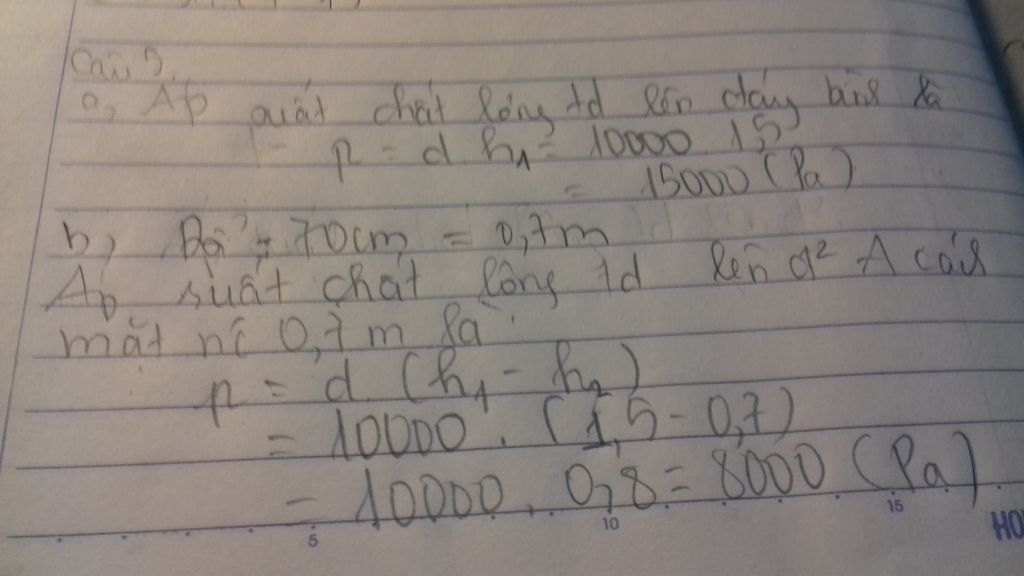 Câu 5.
a, Áp suất chất lỏng td lên đáy bình là
p = d. h1 = 10000 1,5
= 15000 (Pa)
b, Đổi : 70cm = 0,7m
Áp suất chất lỏng td lên đ² A cách
mặt nc 0,7m là
p = d (h1 - h2)
= 10000 . (1,5 - 0,7)
= 10000. 0,8 = 8000 (Pa)
5 10 15